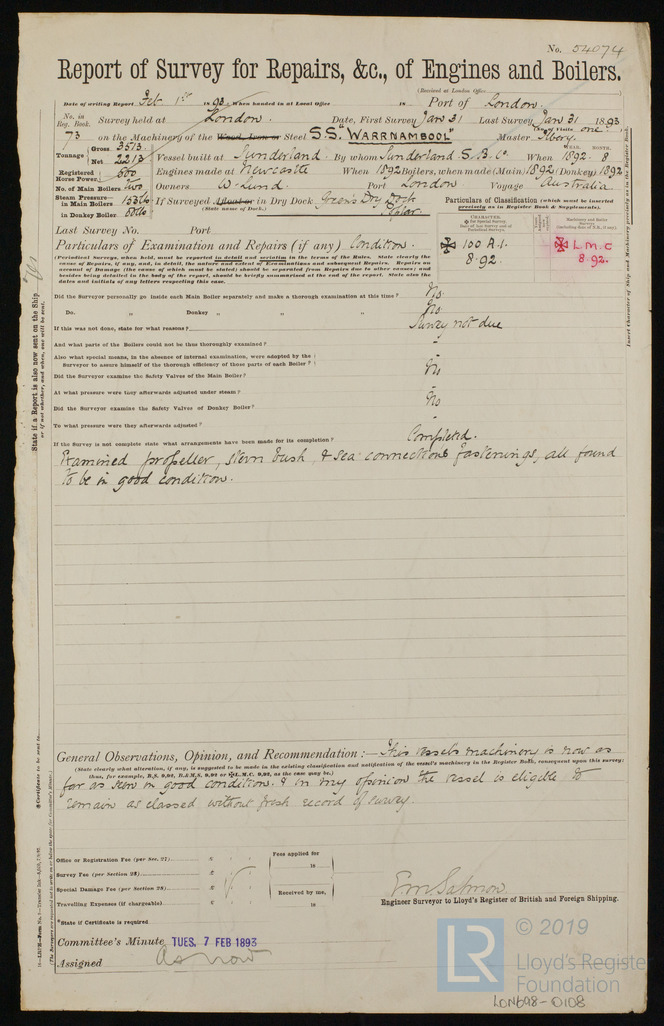 No. 54074
Report of Survey for Repairs, &c., of Engines and Boilers.
(Received at London Office
Date of writing Report Feb 1st 1893. When handed in at Local Office 18 Port of London.
No. in Reg. Book. Survey held at London. Date, First Survey Jan 31 Last Survey Jan 31 1893
(No. of Visits one.)
73 on the Machinery of the Wood, Iron or Steel S.S. "WARRNAMBOOL" Master
Tonnage Gross 3513. Net 2213 Vessel built at Sunderland. By whom Sunderland S. B. Co. When YEAR. 1892. MONTH. 8
Registered Horse Power 600 Engines made at Newcastle When 1892 Boilers, when made (Main) 1892 (Donkey) 1892
No. of Main Boilers two Owners W. Lund. Port London Voyage Australia
Steam Pressure— in Main Boilers in Donkey Boiler If Surveyed Afloat or in Dry Dock Green's Dry Dock
(State name of Dock.)
Particulars of Classification (which must be inserted precisely as in Register Book & Supplements).
Last Survey No. Port
Particulars of Examination and Repairs (if any) Condition.
✠ 100 A.1. 8.92.
✠ L.M.C 8.92.
(Periodical Surveys, when held, must be reported in detail and seriatim in the terms of the Rules. State clearly the
cause of Repairs, if any, and, in detail, the nature and extent of Examinations and subsequent Repairs. Repairs on
account of Damage (the cause of which must be stated) should be separated from Repairs due to other causes; and
besides being detailed in the body of the report, should be briefly summarised at the end of the report. State also the
dates and initials of any letters respecting this case.
Did the Surveyor personally go inside each Main Boiler separately and make a thorough examination at this time? No.
Do. " Donkey " " " No.
If this was not done, state for what reasons? Survey not due
And what parts of the Boilers could not be thoroughly examined? -
Also what special means, in the absence of internal examination, were adopted by the
Surveyor to assure himself of the thorough efficiency of those parts of each Boiler? -
Did the Surveyor examine the Safety Valves of the Main Boiler? No
At what pressure were they afterwards adjusted under steam? -
Did the Surveyor examine the Safety Valves of Donkey Boiler? No
To what pressure were they afterwards adjusted? -
If the Survey is not complete state what arrangements have been made for its completion? Completed.
Examined propeller, stern bush, & sea connections fastenings, all found
to be in good condition.
General Observations, Opinion, and Recommendation:— This vessels machinery is now as
(State clearly what alteration, if any, is suggested to be made in the existing classification and notification of the vessel's machinery in the Register Book, consequent upon this survey;
thus, for example, B.S. 9,92, B.&M.S. 9,92 or ✠L.M.C. 9,92, as the case may be.)
far as seen in good condition. & in my opinion the vessel is eligible to
remain as classed without fresh record of survey.
Office or Registration Fee (per Sec. 27) £ Fees applied for
Survey Fee (per Section 28) £ 18
Special Damage Fee (per Section 28) £ Received by me,
Travelling Expenses (if chargeable) £ 18
E M Salmon
Engineer Surveyor to Lloyd's Register of British and Foreign Shipping.
*State if Certificate is required
Committee's Minute TUES. 7 FEB 1893
Assigned As now
State if a Report is also now sent on the Ship
or if not, whether, and when, one will be sent.
Insert Character of Ship and Machinery precisely as in the Register Book.
LR © 2019
Lloyd's Register
Foundation
LON698-0108